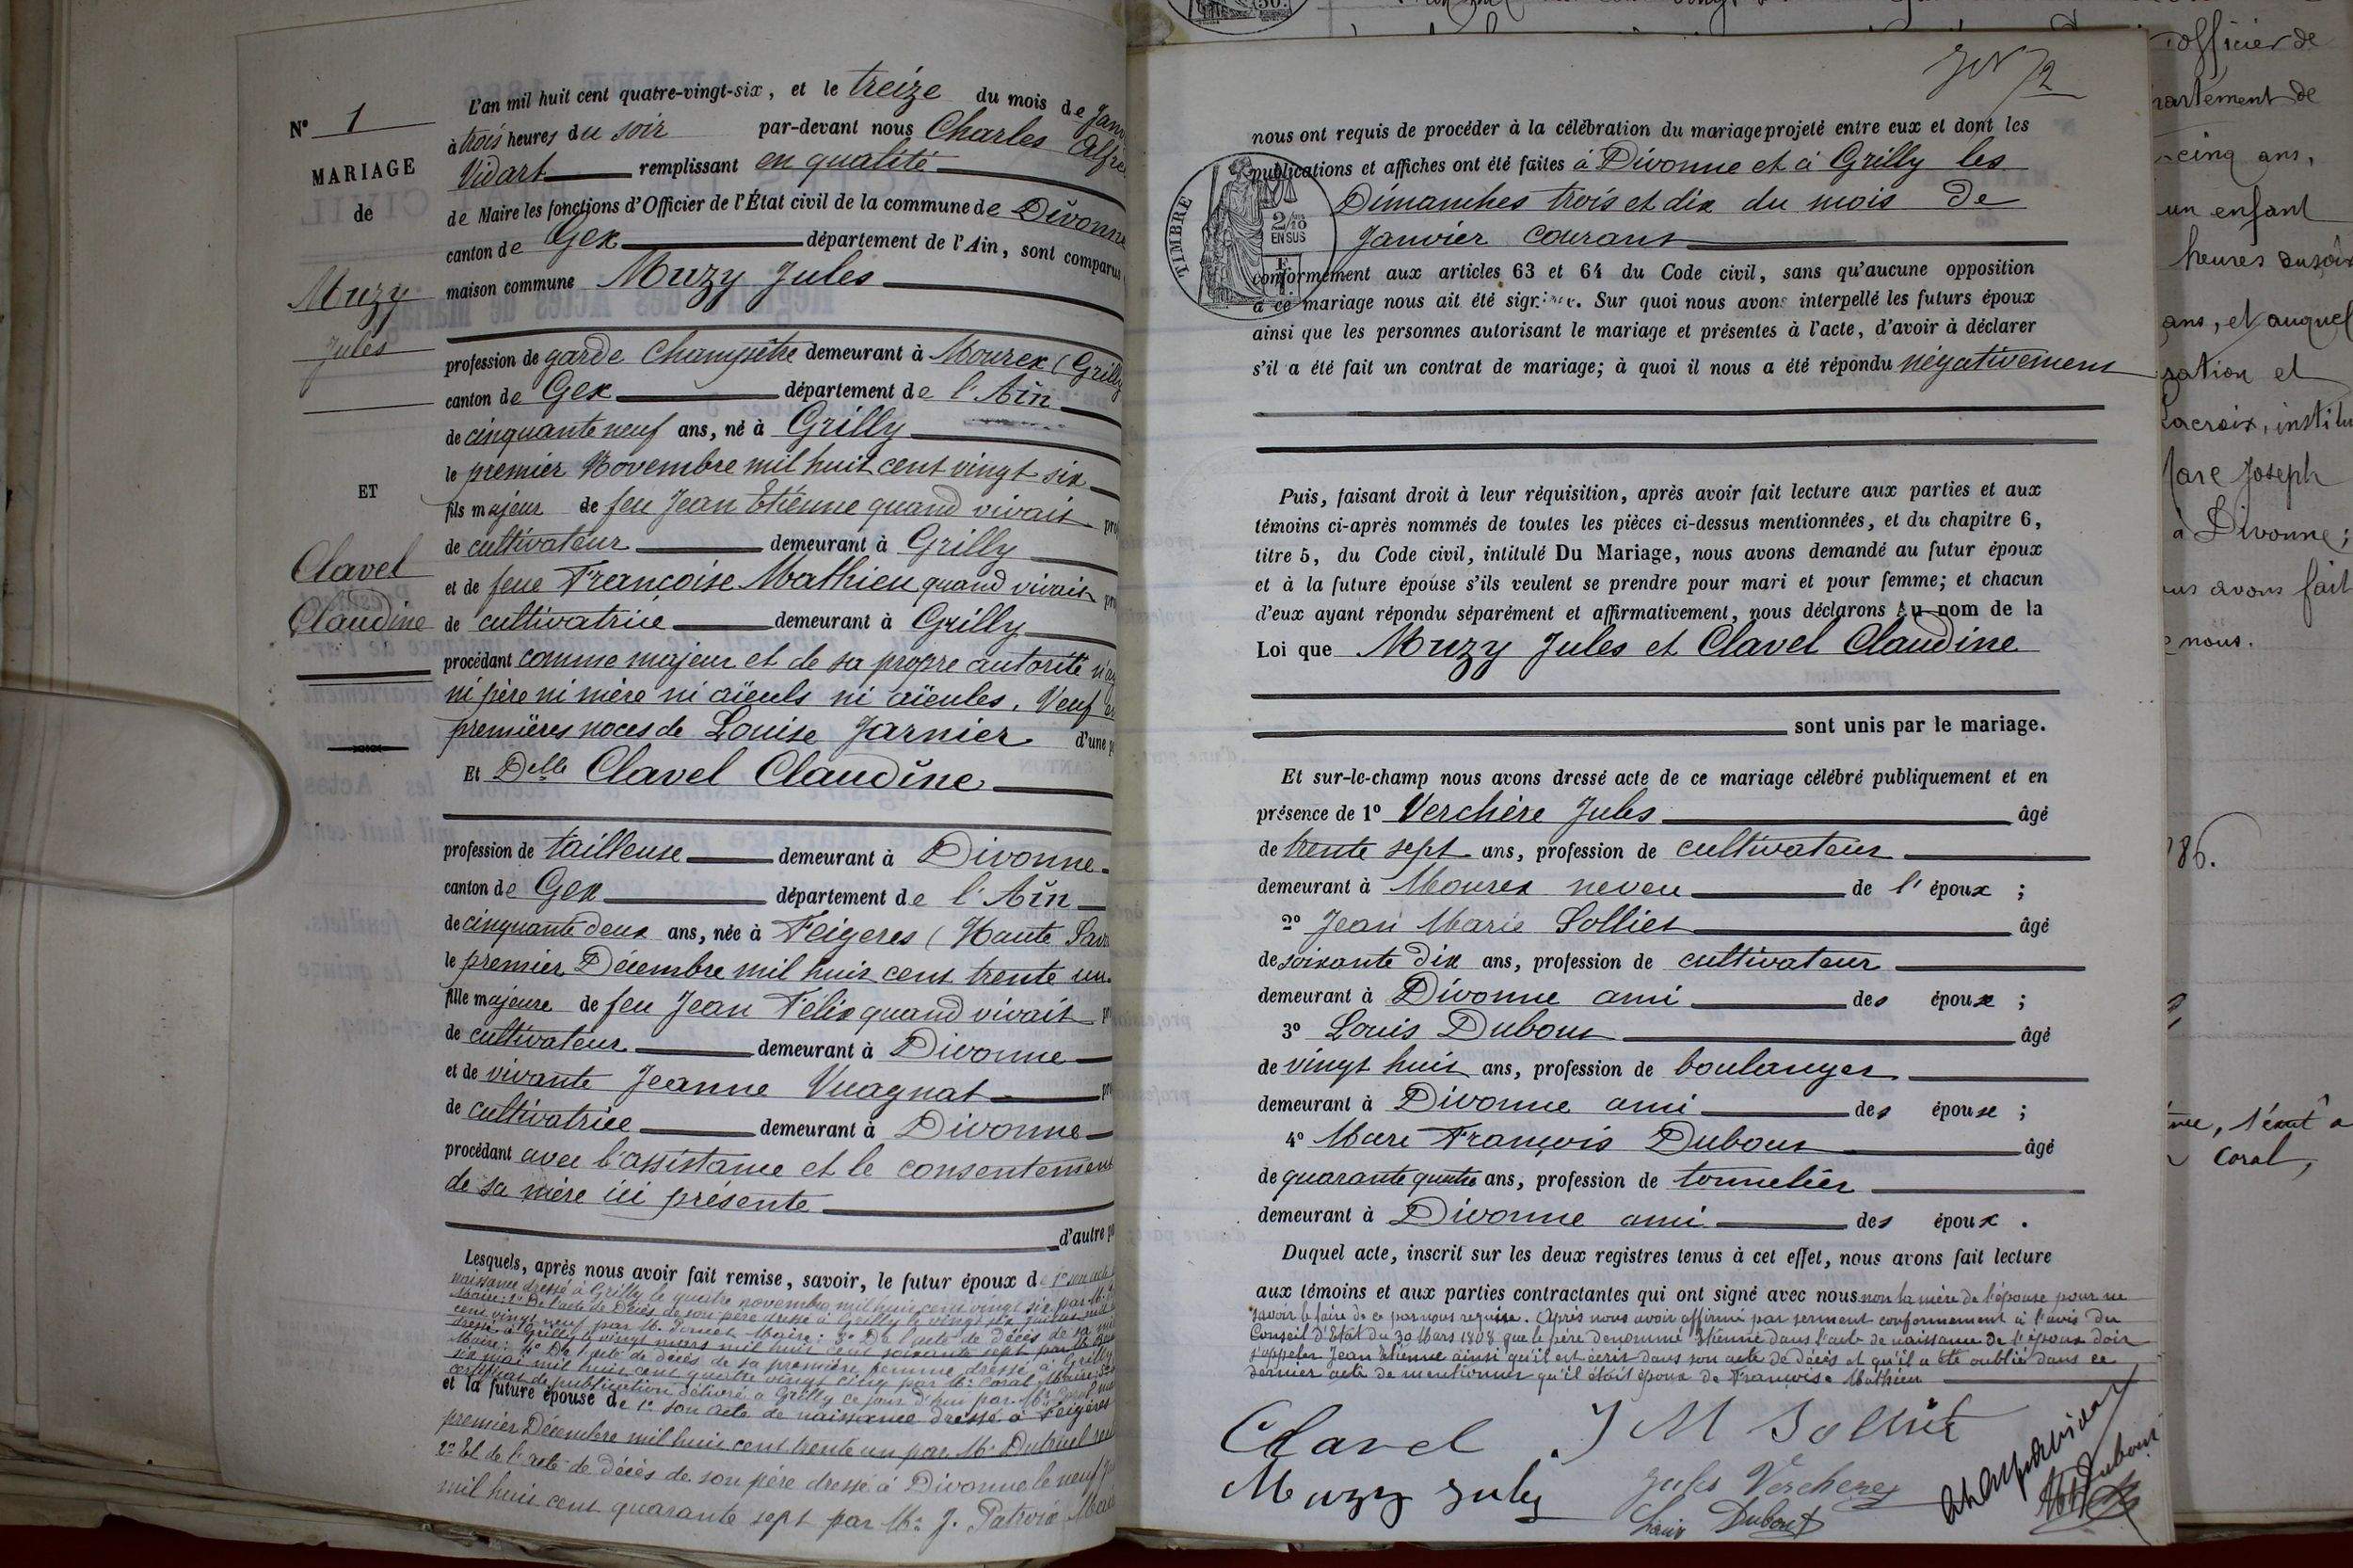 N° 1
MARIAGE
de
Muzy
Jules
ET
Clavel
Claudine
L'an mil huit cent quatre-vingt-six, et le treize du mois de Janv
à trois heures du soir par-devant nous Charles Alfre
Vidart remplissant en qualité
de Maire les fonctions d'Officier de l'État civil de la commune de Divonne
canton de Gex département de l'Ain, sont comparus
maison commune Muzy Jules
profession de garde Champêtre demeurant à Mourex (Grilly
canton de Gex département de l'Ain
de cinquante neuf ans, né à Grilly
le premier Novembre mil huit cent vingt six
fils majeur de feu Jean Etienne quand vivait pro
de cultivateur demeurant à Grilly
et de feue Françoise Mathieu quand vivait pro
de cultivatrice demeurant à Grilly
procédant comme majeur et de sa propre autorité n'ay
ni père ni mère ni aïeuls ni aïeules. Veuf en
premières noces de Louise Jarnier d'une p
Et Delle Clavel Claudine
profession de tailleuse demeurant à Divonne
canton de Gex département de l'Ain
de cinquante deux ans, née à Feigeres (Haute Savo
le premier Décembre mil huit cent trente un
fille majeure de feu Jean Félix quand vivait pr
de cultivateur demeurant à Divonne
et de vivante Jeanne Vuagnat pro
de cultivatrice demeurant à Divonne
procédant avec l'assistance et le consentement
de sa mère ici présente
d'autre p
Lesquels, après nous avoir fait remise, savoir, le futur époux de 1° son acte
naissance dressé à Grilly le quatre novembre mil huit cent vingt six par Mr
Maire: 2° De l'acte de décès de son père dressé à Grilly le vingt six
cent vingt neuf par M. Maire: 3° De l'acte de décès de sa
dressé à Grilly le vingt mars mil huit cent soixante sept par M.
Maire: 4° De l'acte de décès de sa première femme dressé à Grilly
six mai mil huit cent quatre vingt cinq par Mr Coral Maire:
certificat de publication délivré à Grilly ce jour d'hui par Mr Coral
et la future épouse de 1° son acte de naissance dressé à Feigères
premier Décembre mil huit cent trente un par Mr Dutruel
2° Et de l'acte de décès de son père dressé à Divonne le neuf
mil huit cent quarante sept par Mr J. Patroix Maire
2
nous ont requis de procéder à la célébration du mariage projeté entre eux et dont les
publications et affiches ont été faites à Divonne et à Grilly les
Dimanches trois et dix du mois de
Janvier courant
TIMBRE
2/10
EN SUS
conformément aux articles 63 et 64 du Code civil, sans qu'aucune opposition
à ce mariage nous ait été signifiée. Sur quoi nous avons interpellé les futurs époux
ainsi que les personnes autorisant le mariage et présentes à l'acte, d'avoir à déclarer
s'il a été fait un contrat de mariage; à quoi il nous a été répondu négativement
Puis, faisant droit à leur réquisition, après avoir fait lecture aux parties et aux
témoins ci-après nommés de toutes les pièces ci-dessus mentionnées, et du chapitre 6,
titre 5, du Code civil, intitulé Du Mariage, nous avons demandé au futur époux
et à la future épouse s'ils veulent se prendre pour mari et pour femme; et chacun
d'eux ayant répondu séparément et affirmativement, nous déclarons Au nom de la
Loi que Muzy Jules et Clavel Claudine
sont unis par le mariage.
Et sur-le-champ nous avons dressé acte de ce mariage célébré publiquement et en
présence de 1° Verchère Jules âgé
de trente sept ans, profession de cultivateur
demeurant à Mourex neveu de l'époux;
2° Jean Marie Solliet âgé
de soixante dix ans, profession de cultivateur
demeurant à Divonne ami des époux;
3° Louis Dubout âgé
de vingt huit ans, profession de boulanger
demeurant à Divonne ami des épouse;
4° Marc François Dubout âgé
de quarante quatre ans, profession de tonnelier
demeurant à Divonne ami des époux.
Duquel acte, inscrit sur les deux registres tenus à cet effet, nous avons fait lecture
aux témoins et aux parties contractantes qui ont signé avec nous non la mère de l'épouse pour ne
savoir le faire de ce par nous requise. Après nous avoir affirmé par serment conformément à l'avis du
Conseil d'Etat du 30 Mars 1808 que le père dénommé Etienne dans l'acte de naissance de l'époux doit
s'appeler Jean Etienne ainsi qu'il est écrit dans son acte de décès et qu'il a été oublié dans ce
dernier acte de mentionner qu'il était époux de Françoise Mathieu
Clavel J M Solliet
Muzy Jules Jules Verchere
Louis Dubout
officier de
partement de
cinq ans,
un enfant
heures du soir
ans, et auquel
ration et
Lacroix, institu
Marc Joseph
à Divonne;
ous avons fait
nous.
86.
Coral,